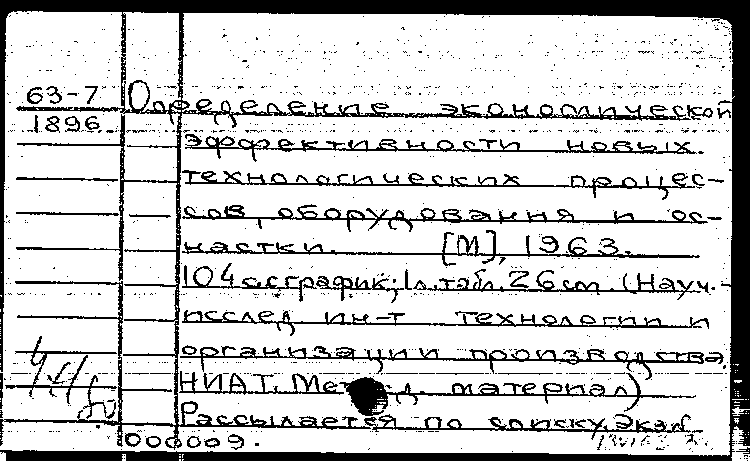 63-7
1896
Определение экономической
эффективности новых
технологических процес-
сов, оборудования и ос-
настки. [М], 1963.
104 с. с график; 1 л. табл. 26 см. (Науч.-
исслед ин-т технологии и
организации производства.
НИАТ. Метод. материал)
Рассылается по списку. Экз.
000009.